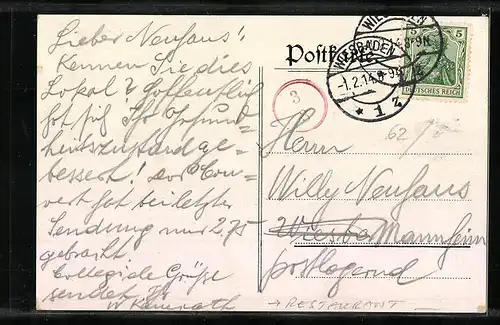 Lieber Neuhaus!
Kennen Sie dies
Lokal? Hoffentlich
hat sich Ihr Gesund-
heitszustand ge-
bessert! Das Cou-
vert hat bei letzter
Sendung nur 2,75
gebracht
Collegiale Grüße
sendet Ihr
W
Postkarte
WIESBADEN
8-9N
WIESBADEN
-1.2.14.8-9N
* 1 z
5 5
DEUTSCHES REICH
3
62
Herrn
Willy Neuhaus
Wiesba Mannheim
postlagernd
→ RESTAURANT -